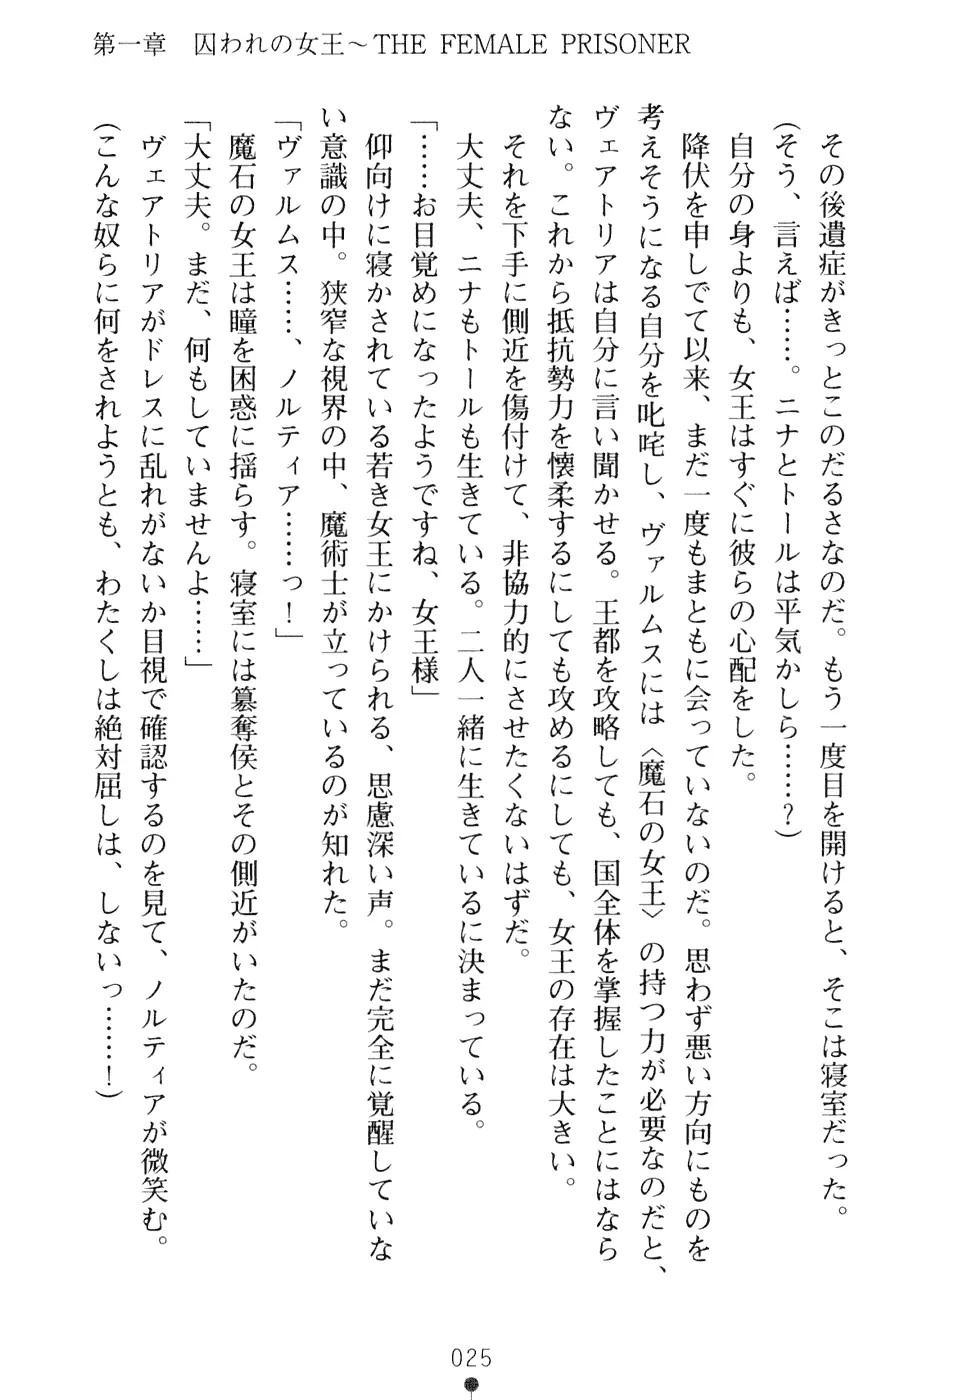 第一章　囚われの女王～THE FEMALE PRISONER
　その後遺症がきっとこのだるさなのだ。もう一度目を開けると、そこは寝室だった。
（そう、言えば……。ニナとトールは平気かしら……？）
　自分の身よりも、女王はすぐに彼らの心配をした。
　降伏を申しでて以来、まだ一度もまともに会っていないのだ。思わず悪い方向にものを
考えそうになる自分を叱咤し、ヴァルムスには〈魔石の女王〉の持つ力が必要なのだと、
ヴェアトリアは自分に言い聞かせる。王都を攻略しても、国全体を掌握したことにはなら
ない。これから抵抗勢力を懐柔するにしても攻めるにしても、女王の存在は大きい。
　それを下手に側近を傷付けて、非協力的にさせたくないはずだ。
　大丈夫、ニナもトールも生きている。二人一緒に生きているに決まっている。
「……お目覚めになったようですね、女王様」
　仰向けに寝かされている若き女王にかけられる、思慮深い声。まだ完全に覚醒していな
い意識の中。狭窄な視界の中、魔術士が立っているのが知れた。
「ヴァルムス……、ノルティア……っ！」
　魔石の女王は瞳を困惑に揺らす。寝室には簒奪侯とその側近がいたのだ。
「大丈夫。まだ、何もしていませんよ……」
　ヴェアトリアがドレスに乱れがないか目視で確認するのを見て、ノルティアが微笑む。
（こんな奴らに何をされようとも、わたくしは絶対屈しは、しないっ……！）
025